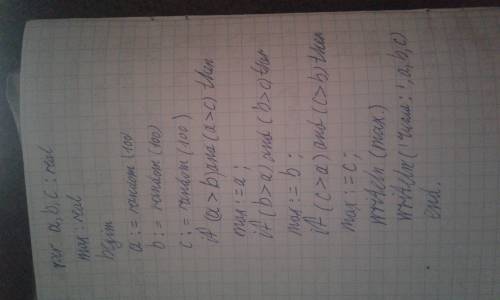 var a, b, c : real
max : real
begin
a : = random (100
b : = random (100)
c : = random (100)
if (a > b) and (a > c) then
max : = a ;
if (b > a) and (b > c) then
max : = b ;
if (c > a) and (c > b) then
max : = c ;
writeln (max)
writeln ('числа: ', a, b, c)
end.